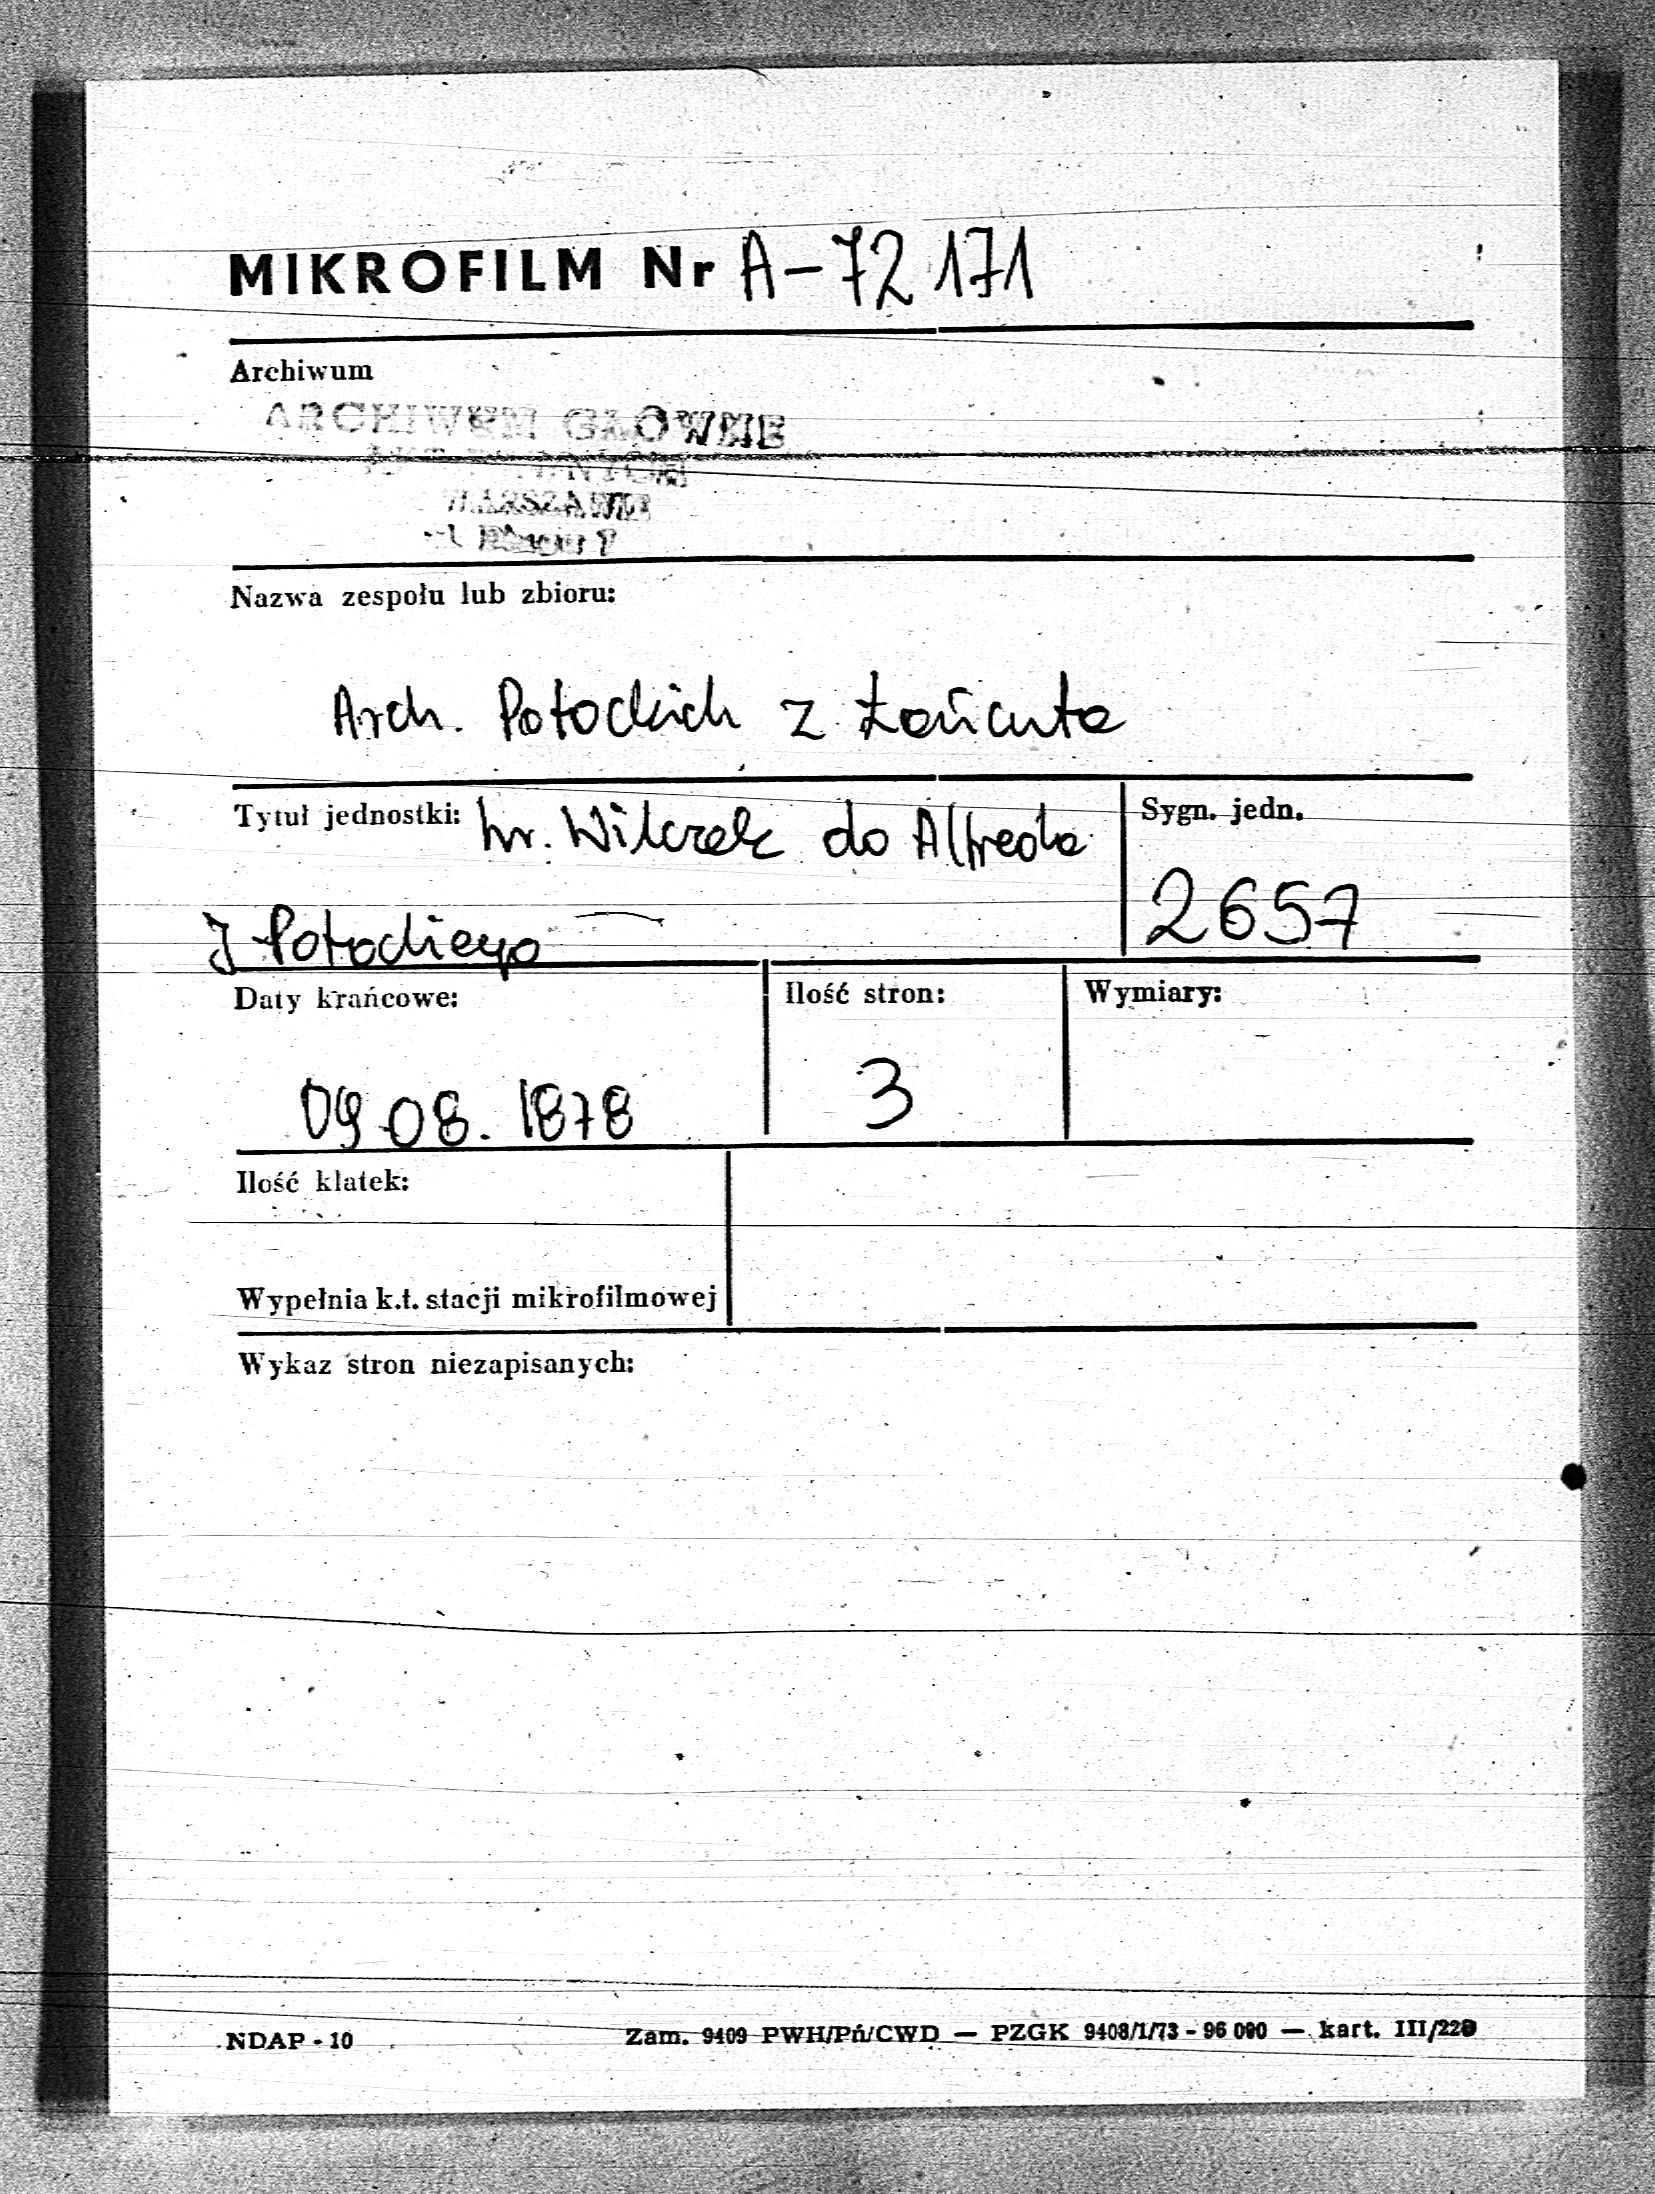 MIKROFILM Nr A-72171
Archiwum
ARCHIWUM GŁÓWNE
WARSZAWIE
Nazwa zespołu lub zbioru:
Arch. Potockich z Łańcuta
Tytuł jednostki: hr. Wilczek do Alfreda
J Potockiego
Sygn. jedn.
2657
Daty krańcowe:
09.08.1878
Ilość stron:
3
Wymiary:
Ilość klatek:
Wypełnia k.t. stacji mikrofilmowej
Wykaz stron niezapisanych:
NDAP - 10
Zam. 9409 PWH/Pń/CWD — PZGK 9408/1/73 - 96 000 — kart. III/220